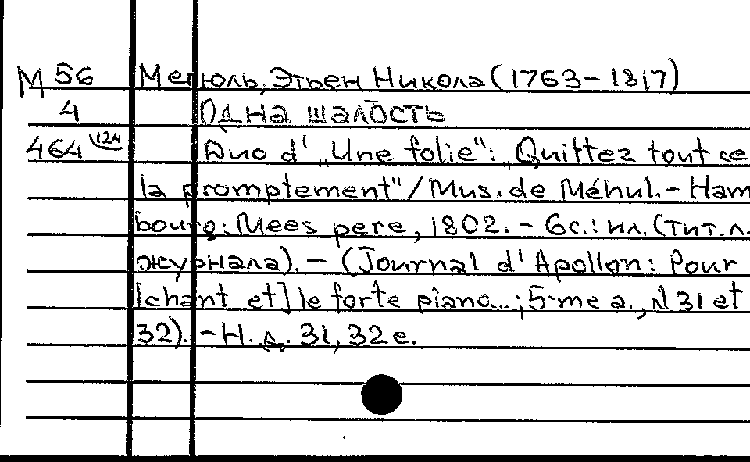 М 56 Мегюль, Этьен Никола (1763-1817)
4 Одна шалость
464 124 Duo d' „Une folie": Quittez tout ce
la promptement"/Mus. de Méhul.- Ham
bourg: Mees pere, 1802. - 6с.: ил. (тит. л.
журнала). - (Journal d'Apollon: Pour
[chant et] le forte piano...; 5-me a., N 31 et
32). - Н. д. 31, 32 e.